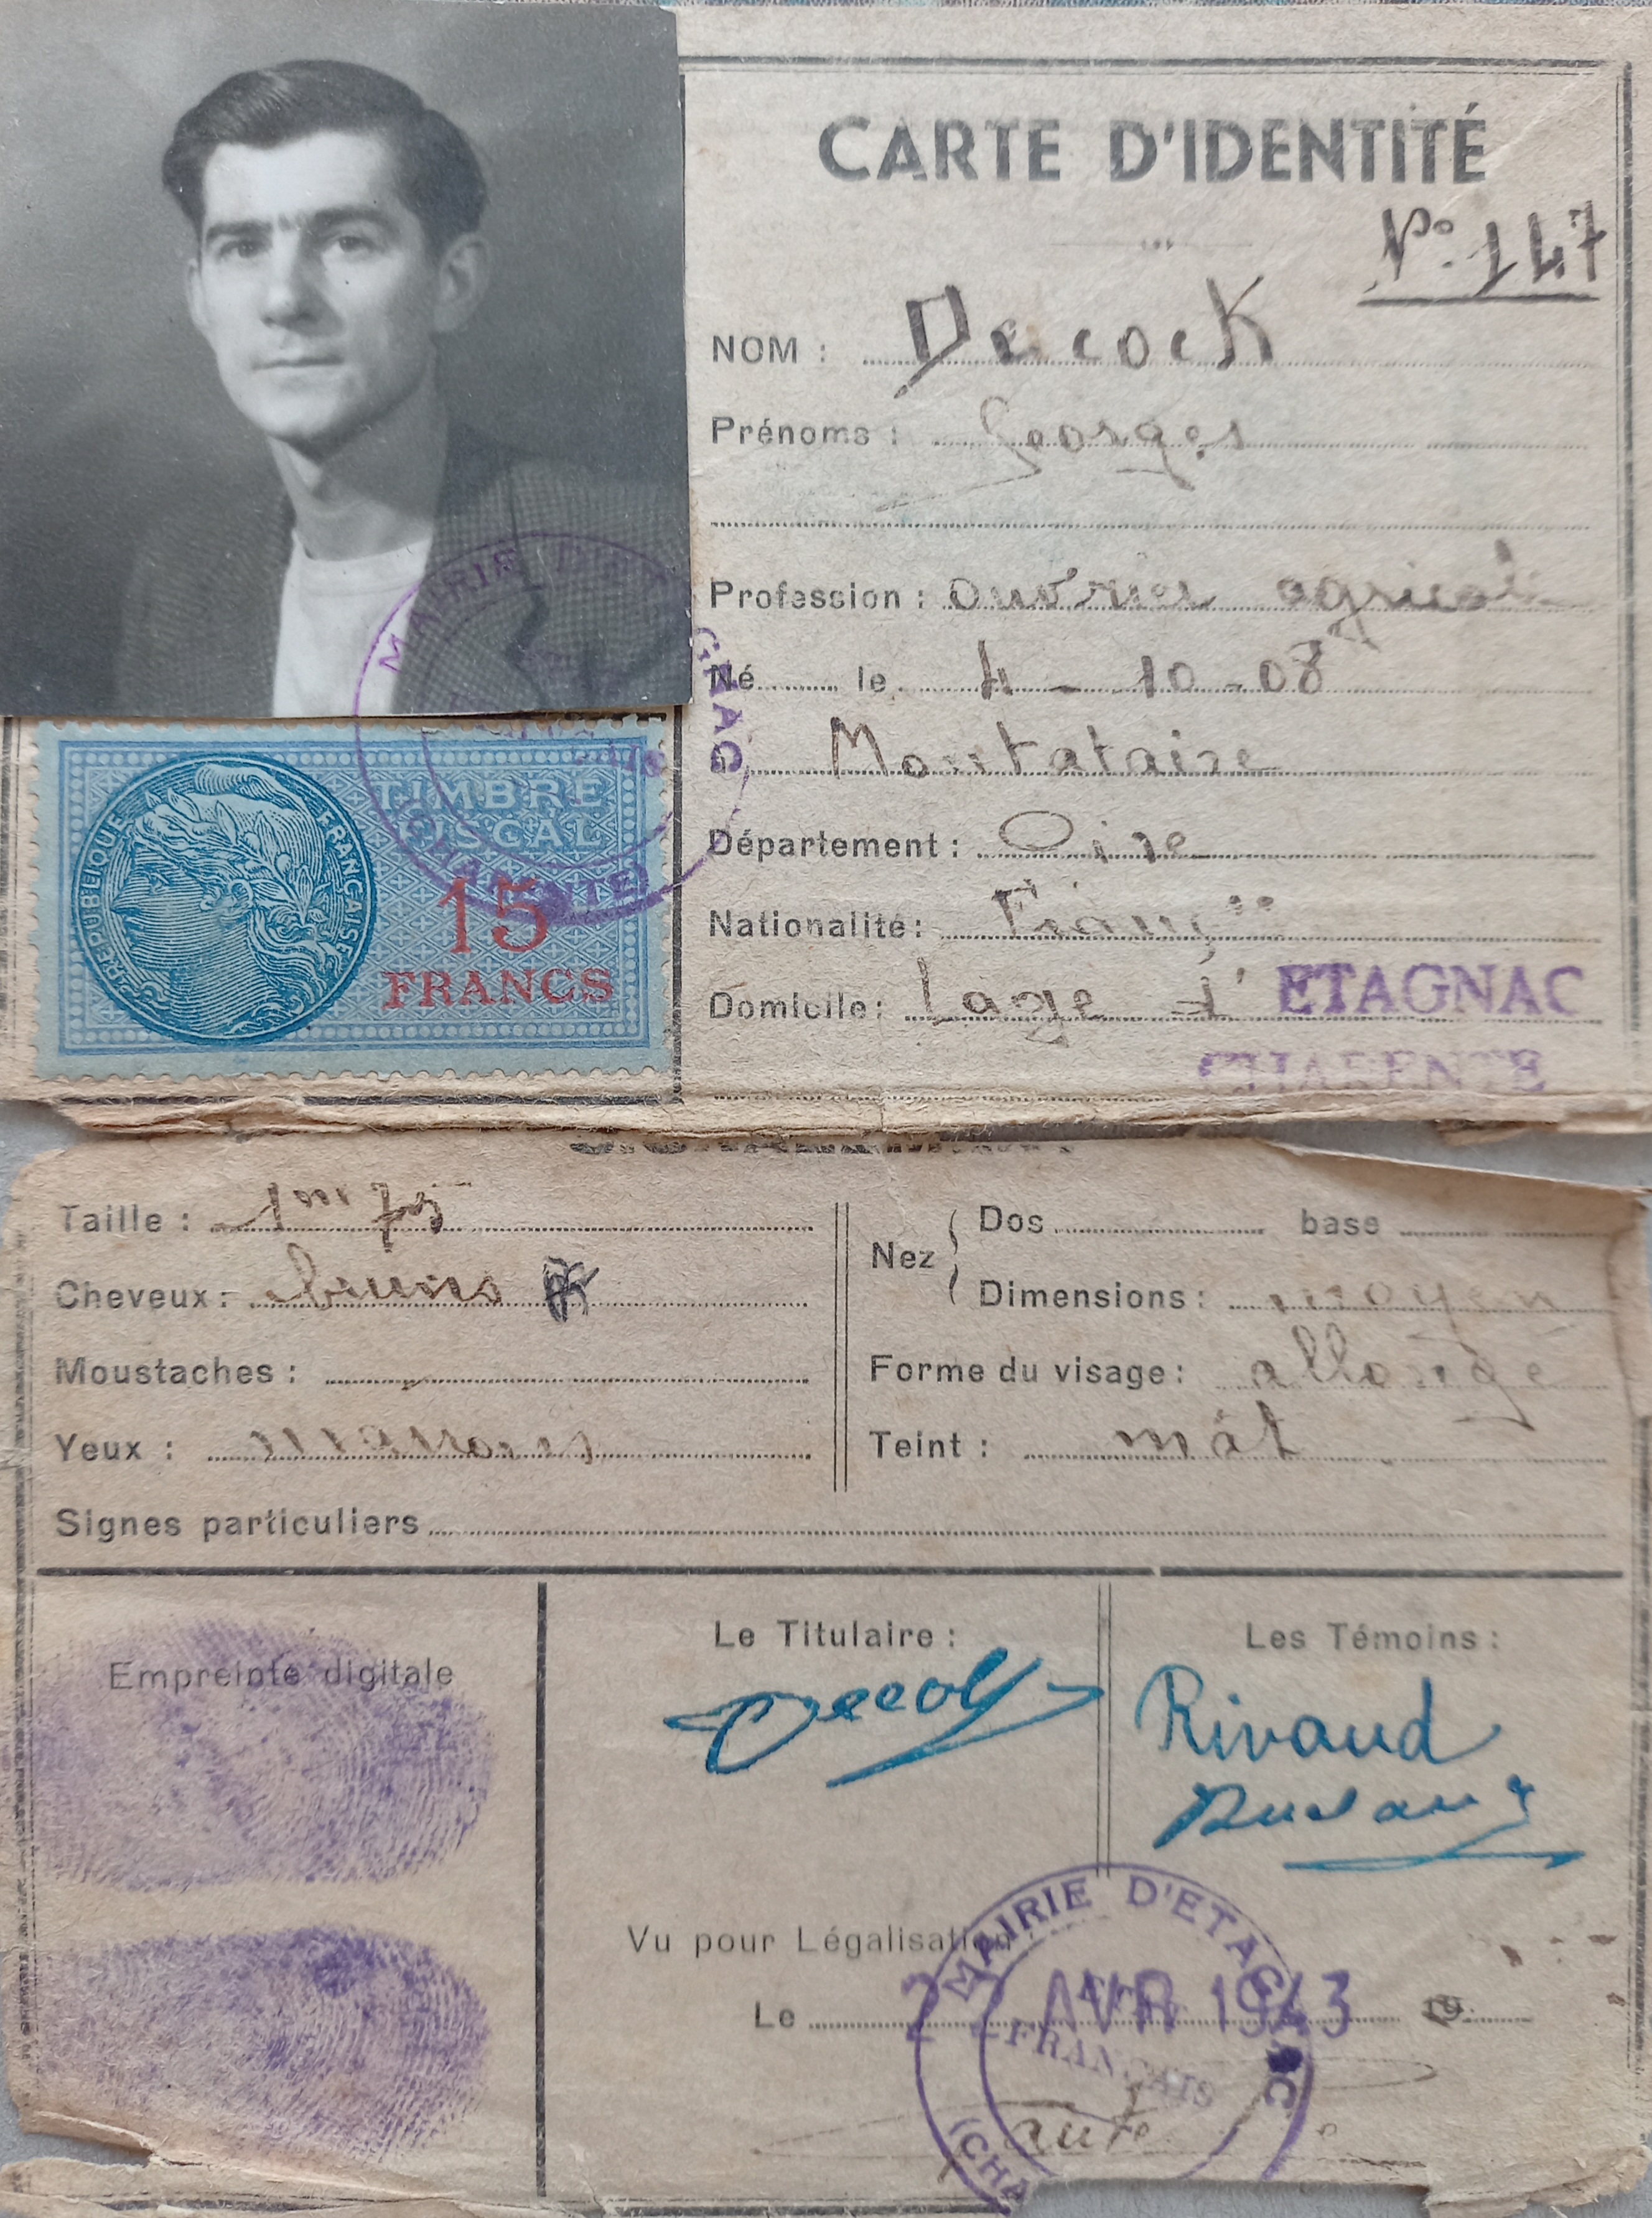 CARTE D'IDENTITÉ
Nº 147
NOM : Decock
Prénoms : Georges
Profession : ouvrier agricole
Né le 4 - 10 - 08
à Montataire
Département : Oise
Nationalité : Française
Domicile : Lage d' ETAGNAC
CHARENTE
MAIRIE D'ETAGNAC
(CHARENTE)
RÉPUBLIQUE FRANÇAISE
TIMBRE
FISCAL
15
FRANCS
Taille : 1m 75
Cheveux : bruns
Moustaches :
Yeux : marrons
Signes particuliers
Nez
Dos base
Dimensions : moyen
Forme du visage : allongé
Teint : mât
Empreinte digitale
Le Titulaire :
Decock
Les Témoins :
Rivaud
Vu pour Légalisation
Le 2 AVR 1943 19
MAIRIE D'ETAGNAC
FRANÇAIS
(CHA